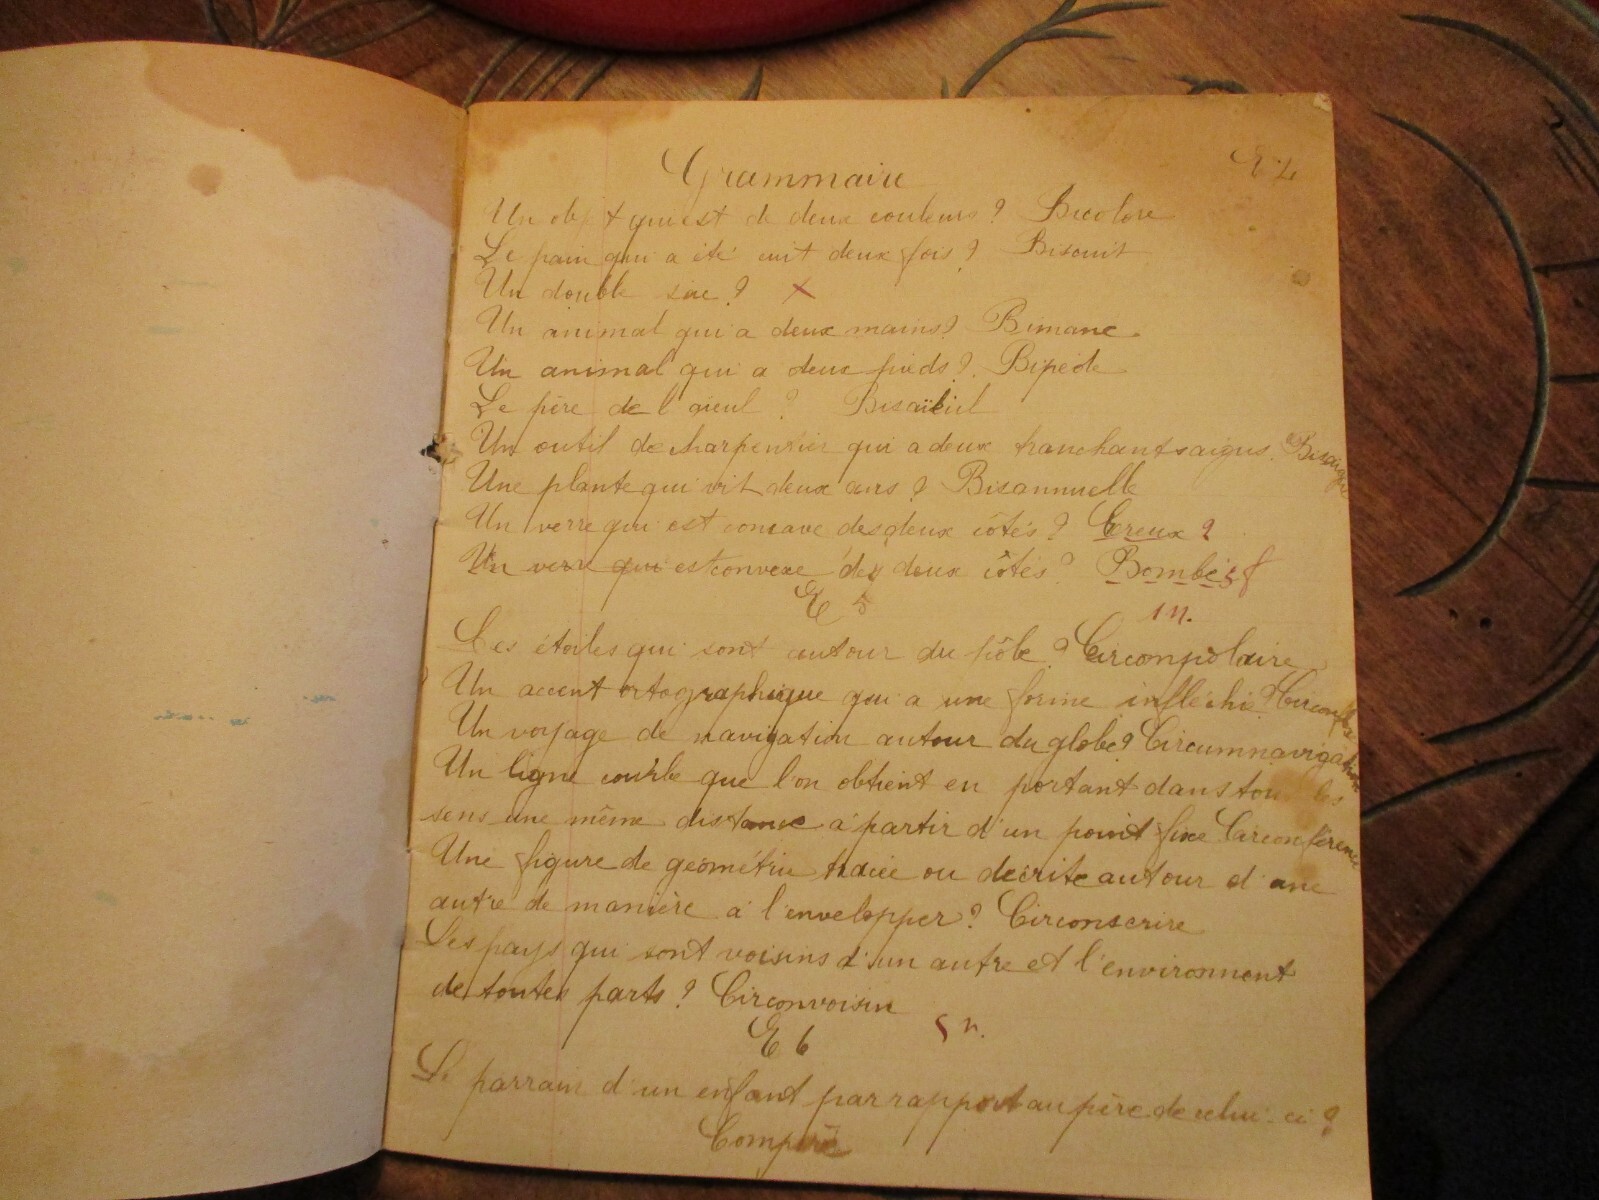 Grammaire
E 4
Un objet qui est de deux couleurs ? Bicolore
Le pain qui a été cuit deux fois ? Biscuit
Un double sac ? X
Un animal qui a deux mains ? Bimane
Un animal qui a deux pieds ? Bipède
Le père de l'aieul ? Bisaïeul
Un outil de charpentier qui a deux tranchants aigus. Bisaigue
Une plante qui vit deux ans ? Bisannuelle
Un verre qui est concave des deux côtés ? Creux ?
Un verre qui est convexe des deux côtés ? Bombé 5 f
E 5
1 n.
Les étoiles qui sont autour du pôle ? Circompolaire
Un accent ortographique qui a une forme infléchie ? Circonflexe
Un voyage de navigation autour du globe ? Circumnavigation
Un ligne courbe que l'on obtient en portant dans tous les
sens une même distance à partir d'un point fixe Circonférence
Une figure de géométrie tracée ou décrite autour d'une
autre de manière à l'envelopper ? Circonscrire
Les pays qui sont voisins d'un autre et l'environnent
de toutes parts ? Circonvoisin
E 6
5 n.
Le parrain d'un enfant par rapport au père de celui-ci ?
Compère